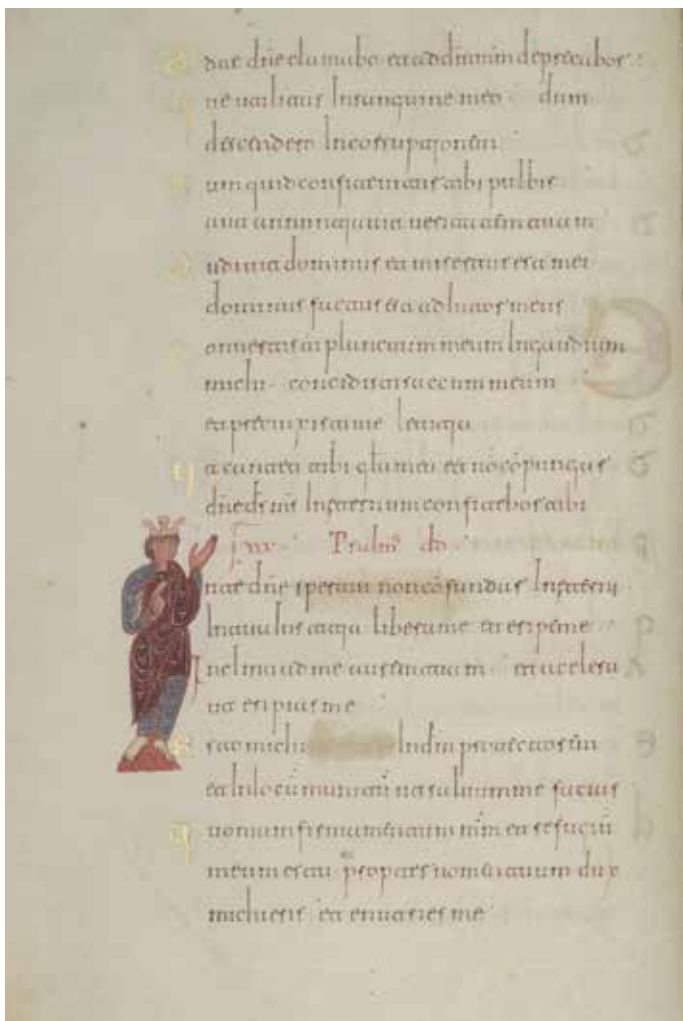 d te dñe clamabo et ad dm mm deprecabor
ue utilitas In sanguine meo dum
descendero In corruptionem
um quid confitebitur tibi pulbis
aut ueritatem tuam
udiuit dominus et misertus est mei
dominus factus est adiutor meus
onuertisti planctum meum In gaudium
michi concidisti saccum meum
et precinxisti me letitia
ut cantet tibi gła mea et nō cōpungar
dñe ds ms In eternum confitebor tibi
Psalm̄ dd
te dñe speraui non cōfundar In eternū
In tua iustitia libera me et eripe me
Inclina ad me aurem tuam et accelera
ut eripias me
Esto michi In dm protectorem
et In locū munitū ut saluum me facias
quoniam firmamentum mm et refugiū
meum es tu et propter nomen tuum dux
michi eris et enutries me